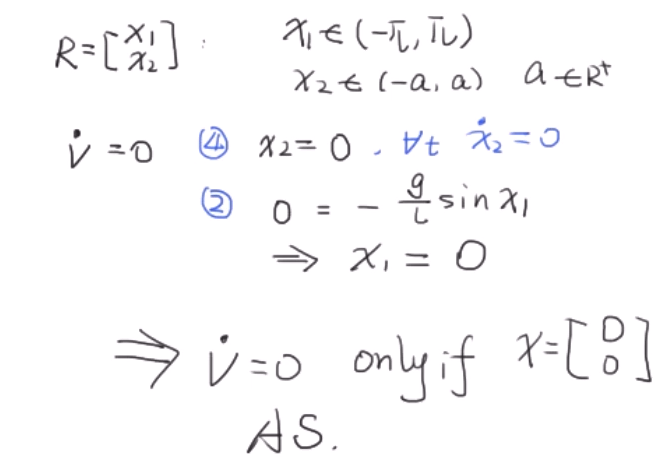 R = [x₁ x₂] : x₁ ∈ (-π, π)
x₂ ∈ (-a, a) a ∈ R⁺
V̇ = 0 ④ x₂ = 0 . ∀t ẋ₂ = 0
② 0 = - g/l sin x₁
⇒ x₁ = 0
⇒ V̇ = 0 only if x = [0 0]
AS.